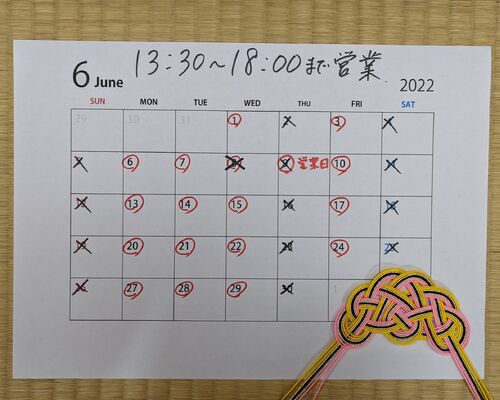 13:30~18:00まで営業
6 June
2022
SUN MON TUE WED THU FRI SAT
29 30 31 1 2 3 4
5 6 7 8 9 営業日 10 11
12 13 14 15 16 17 18
19 20 21 22 23 24 25
26 27 28 29 30 1